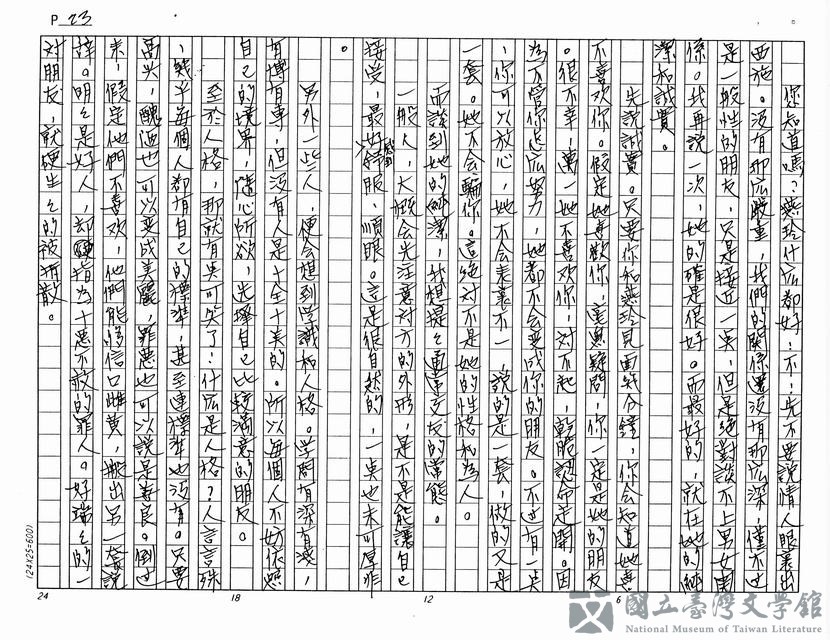 P 23
你知道嗎？燕玲什麼都好，不，先不要說情人眼裏出
西施。沒有那麼嚴重，我們的關係還沒有那麼深，僅不過
是一般性的朋友，只是接近一點，但是絕對談不上男女關
係。我再說一次，她的確是很好。而最好的，就在她的純
潔和誠實。
先說誠實。只要你和燕玲見面幾分鐘，你會知道她喜
不喜欢你。假定她喜歡你，毫無疑問，你一定是她的朋友
。很不幸，萬一她不喜欢你，對不起，乾脆認命走開。因
為不管你怎麼努力，她都不會变成你的朋友。不过有一点
，你可以放心，她不会表裏不一，說的是一套，做的又是
一套。她不会騙你。這絕对不是她的性格和為人。
而談到她的純潔，我想提々通常交友的常態。
一般人，大概会先注意対方的外形，是不是能讓自己
接受，最好能感到舒服，順眼。這是很自然的，一点也未可厚非
。
另外一些人，便会想到学識和人格。学問有深有淺，
有博有專，但沒有人是十全十美的。所以每個人不妨依照
自己的境界，隨心所欲，选擇自己比較滿意的朋友。
至於人格，那就有点可笑了？什麼是人格？人言言殊
，幾乎每個人都有自己的標準，甚至連標準也沒有。只要
高兴，醜陋也可以变成美麗，罪惡也可以說是善良。倒过
來，假定他們不喜欢，他們能够信口雌黃，搬出另一套說
辞。明々是好人，却硬指為十惡不赦的罪人。好端々的一
对朋友，就硬生々的被拆散。
24
18
12
6
(24×25=600)
國立臺灣文學館
National Museum of Taiwan Literature